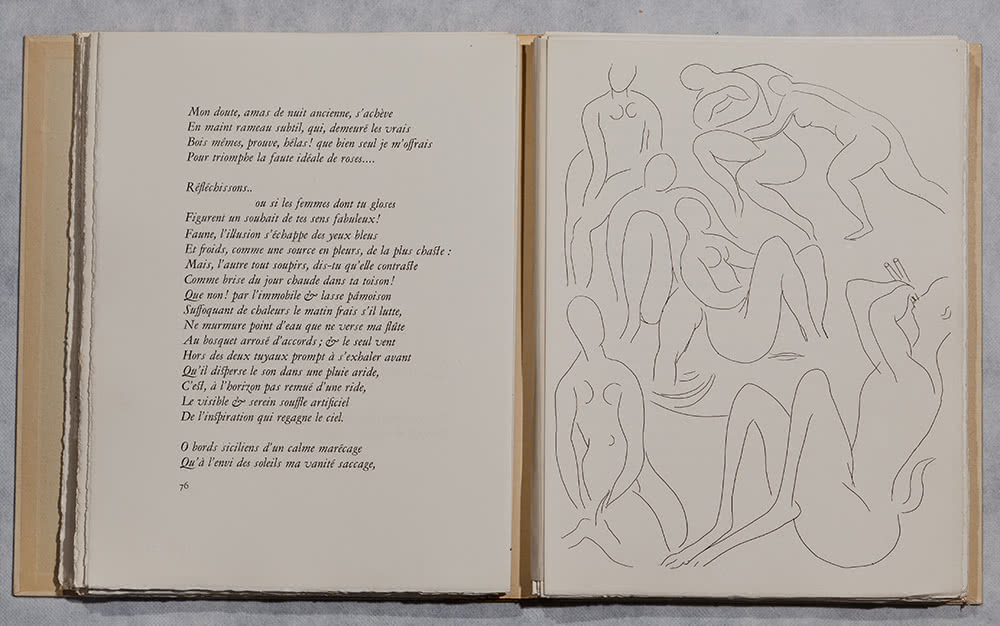 Mon doute, amas de nuit ancienne, s'achève
En maint rameau subtil, qui, demeuré les vrais
Bois mêmes, prouve, hélas! que bien seul je m'offrais
Pour triomphe la faute idéale de roses....
Réfléchissons..
ou si les femmes dont tu gloses
Figurent un souhait de tes sens fabuleux!
Faune, l'illusion s'échappe des yeux bleus
Et froids, comme une source en pleurs, de la plus chaste :
Mais, l'autre tout soupirs, dis-tu qu'elle contraste
Comme brise du jour chaude dans ta toison!
Que non! par l'immobile & lasse pâmoison
Suffoquant de chaleurs le matin frais s'il lutte,
Ne murmure point d'eau que ne verse ma flûte
Au bosquet arrosé d'accords; & le seul vent
Hors des deux tuyaux prompt à s'exhaler avant
Qu'il disperse le son dans une pluie aride,
C'est, à l'horizon pas remué d'une ride,
Le visible & serein souffle artificiel
De l'inspiration qui regagne le ciel.
O bords siciliens d'un calme marécage
Qu'à l'envi des soleils ma vanité saccage,
76